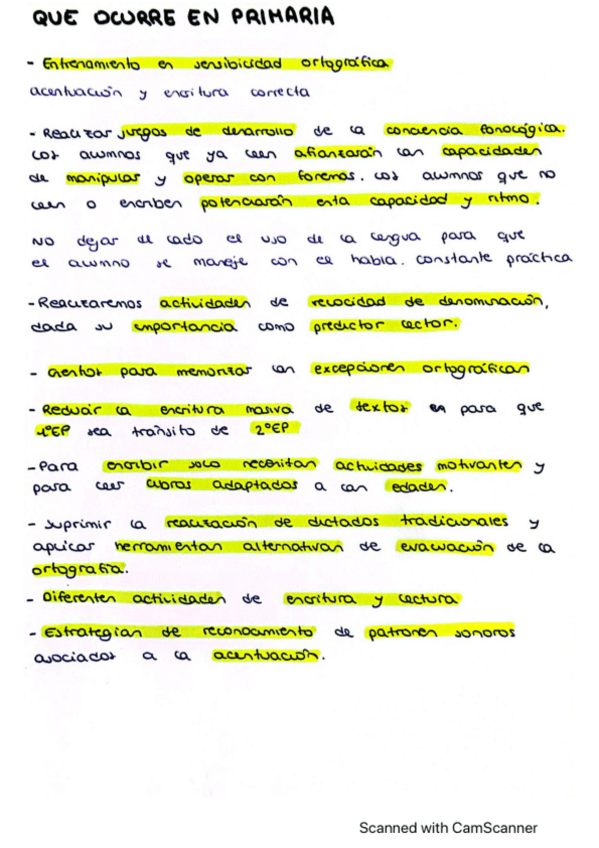 QUE OCURRE EN PRIMARIA
- Entrenamiento en sensibilidad ortográfica
acentuación y escritura correcta
- Realizar juegos de desarrollo de la conciencia fonológica.
Los alumnos que ya leen afianzarán las capacidades
de manipular y operar con fonemas. Los alumnos que no
leen o escriben potenciarán esta capacidad y ritmo.
NO dejar de lado el uso de la lengua para que
el alumno se maneje con el habla. constante práctica
- Realizaremos actividades de velocidad de denominación,
dada su importancia como predictor lector.
- Cuentos para memorizar las excepciones ortográficas
- Reducir la escritura masiva de textos para que
1ºEP sea tránsito de 2ºEP
- Para escribir solo necesitan actividades motivantes y
para leer libros adaptados a las edades.
- Suprimir la realización de dictados tradicionales y
aplicar herramientas alternativas de evaluación de la
ortografía.
- Diferentes actividades de escritura y lectura
- Estrategias de reconocimiento de patrones sonoros
asociados a la acentuación.
Scanned with CamScanner